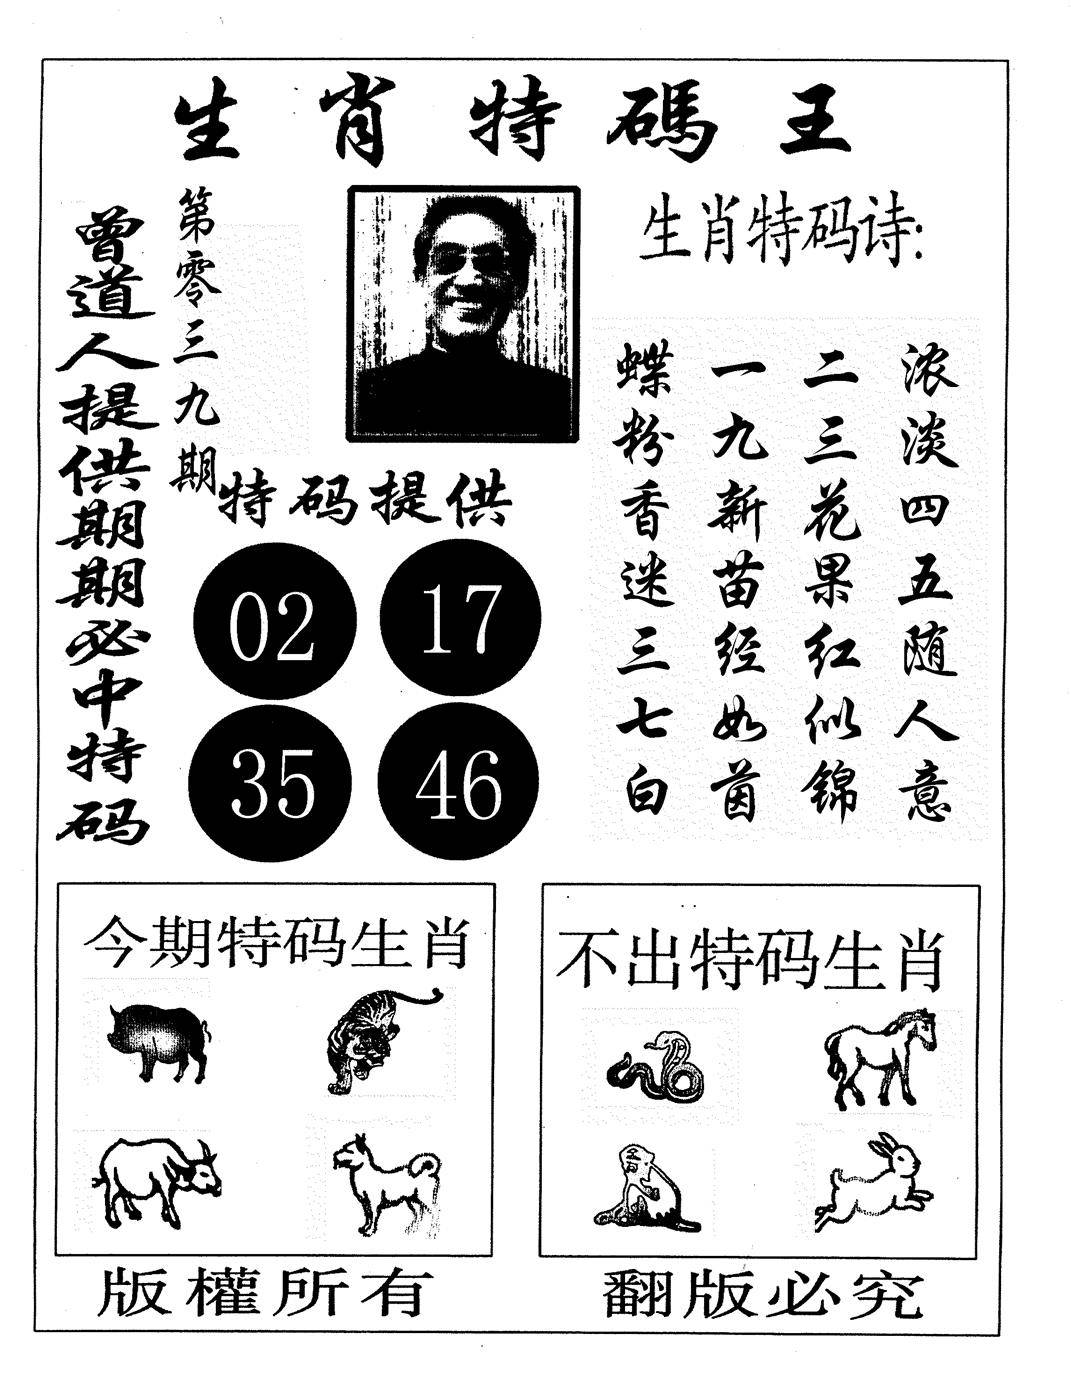 生肖特碼王
曾道人提供期期必中特码
第零三九期
生肖特码诗:
浓淡四五随人意
二三花果红似锦
一九新苗经如茵
蝶粉香迷三七白
特码提供
02 17
35 46
今期特码生肖
不出特码生肖
版權所有
翻版必究